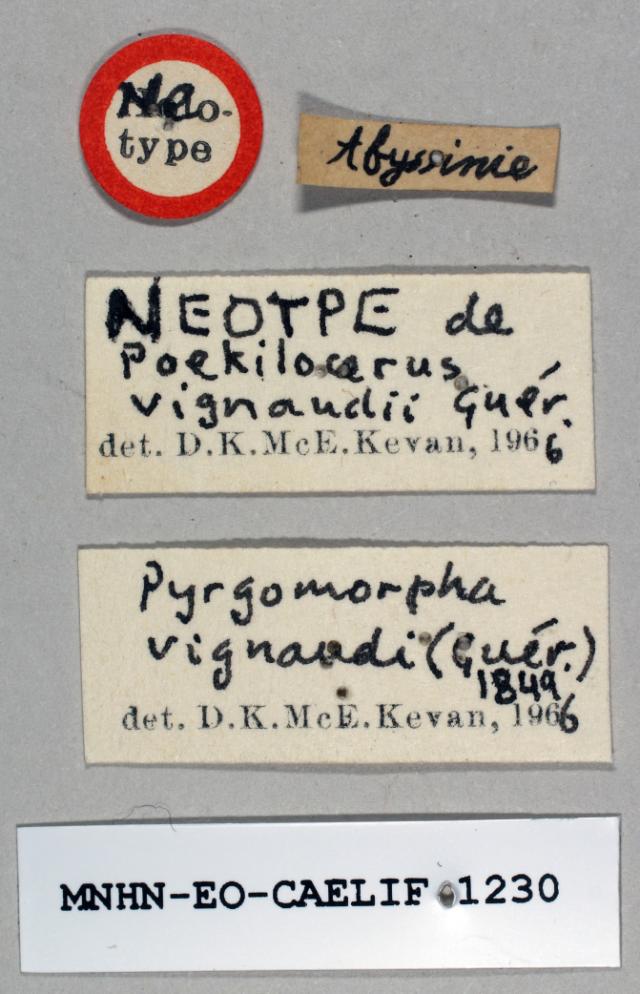 Neo-
type
Abyssinie
NEOTPE de
Poekilocerus
vignaudii Guér.
det. D.K.McE.Kevan, 1966
Pyrgomorpha
vignaudi (Guér.)
1849
det. D.K.McE.Kevan, 1966
MNHN-EO-CAELIF 1230